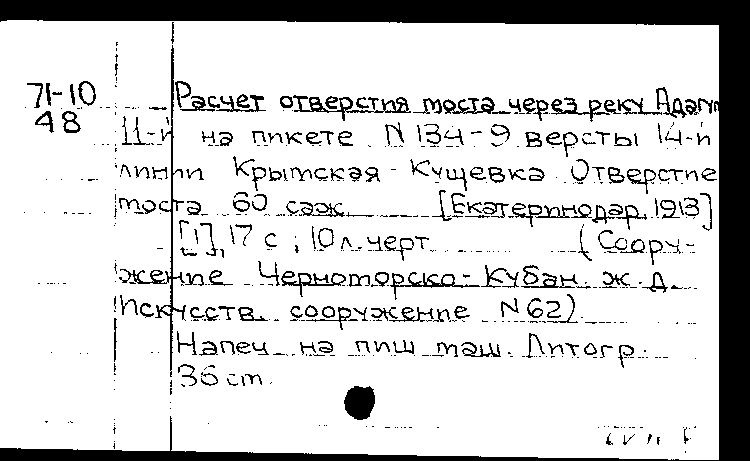 71-10
48
Расчет отверстия моста через реку Адагум
11-й на пикете N 134-9 версты 14-й
линии Крымская - Кущевка. Отверстие
моста 60 саж. [Екатеринодар, 1913]
[1], 17 с ; 10 л. черт. (Соору-
жение Черноморско-Кубан. ж. д.
Искусств. сооружение N 62)
Напеч. на пиш. маш. Литогр.
36 cm.